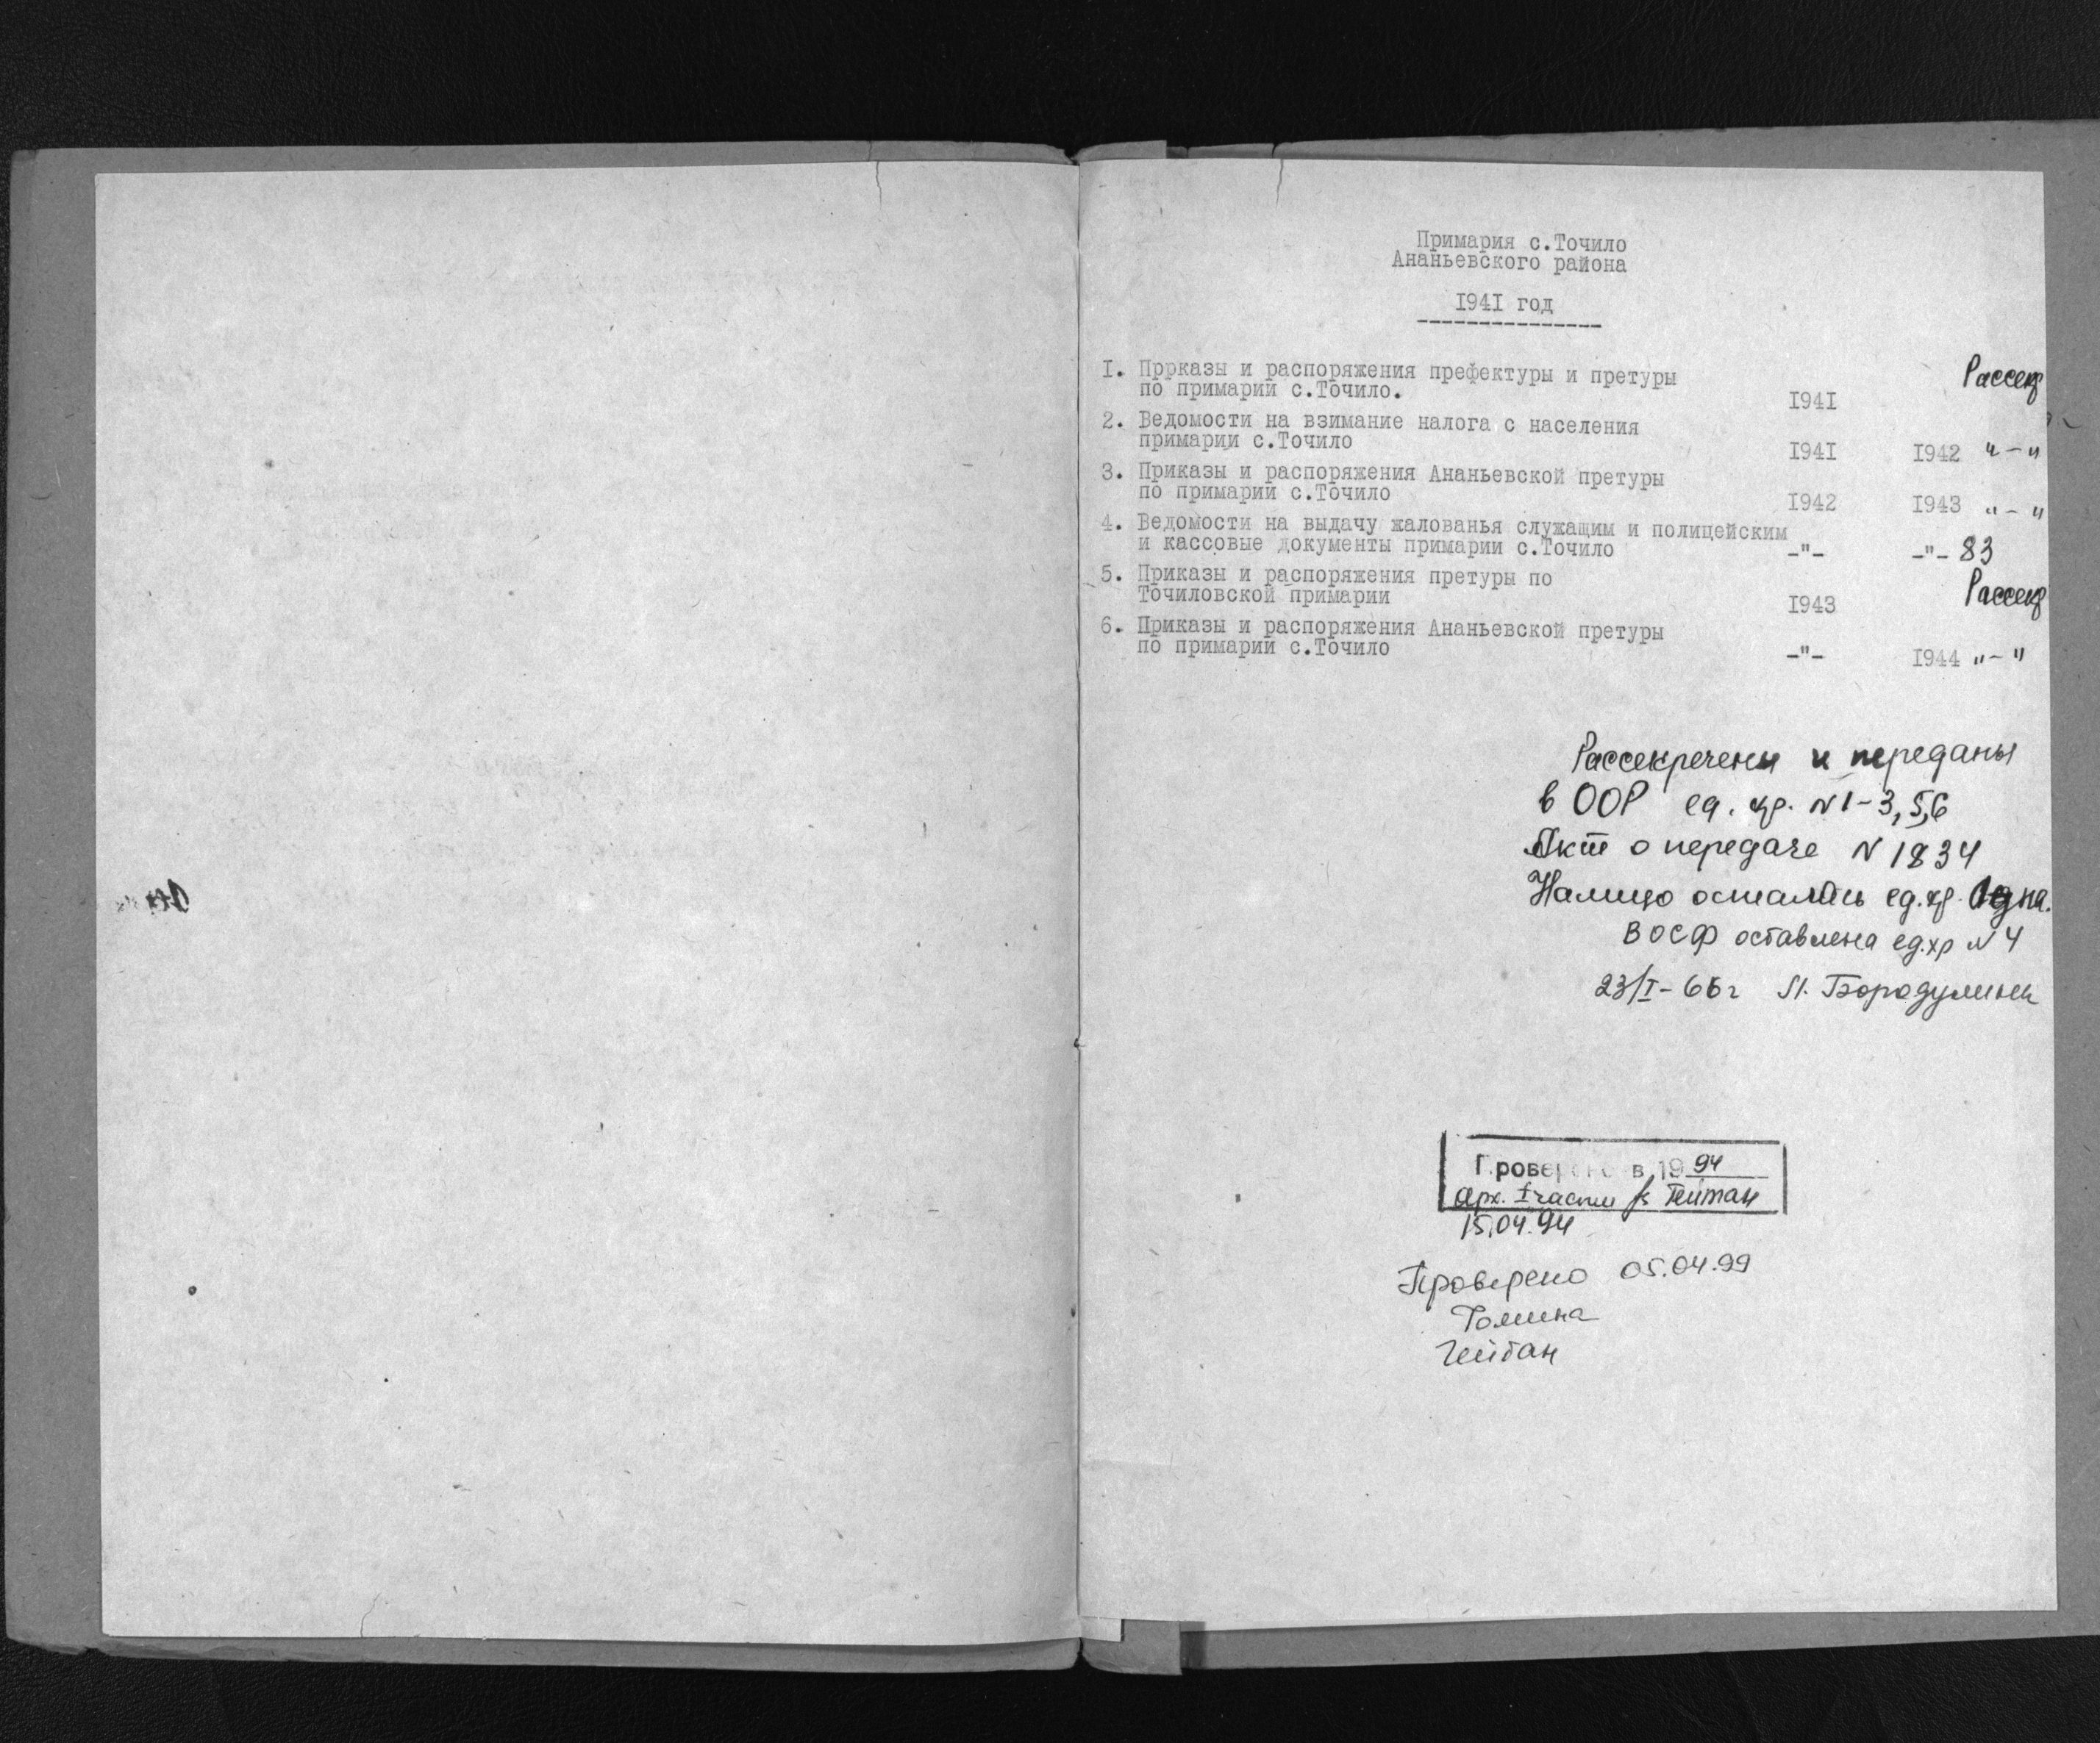 Примария с.Точило
Ананьевского района
I94I год
---------------
I. Пррказы и распоряжения префектуры и претуры
по примарии с.Точило. I94I Рассекр
2. Ведомости на взимание налога с населения
примарии с.Точило I94I I942 "-"
3. Приказы и распоряжения Ананьевской претуры
по примарии с.Точило I942 I943 "-"
4. Ведомости на выдачу жалованья служащим и полицейским
и кассовые документы примарии с.Точило -"- -"- 83
5. Приказы и распоряжения претуры по
Точиловской примарии I943 Рассекр
6. Приказы и распоряжения Ананьевской претуры
по примарии с.Точило -"- I944 "-"
Рассекречены и переданы
в ООР ед. хр. N 1-3, 5,6
Акт о передаче N 1834
Налицо остались ед. хр. Одна.
В ОСФ оставлена ед.хр N 4
23/I-66г Л. Бородулина
Проверено в 1994
Арх. I части Гейтан
15.04.94
Проверено 05.04.99
Томина
Гейтан